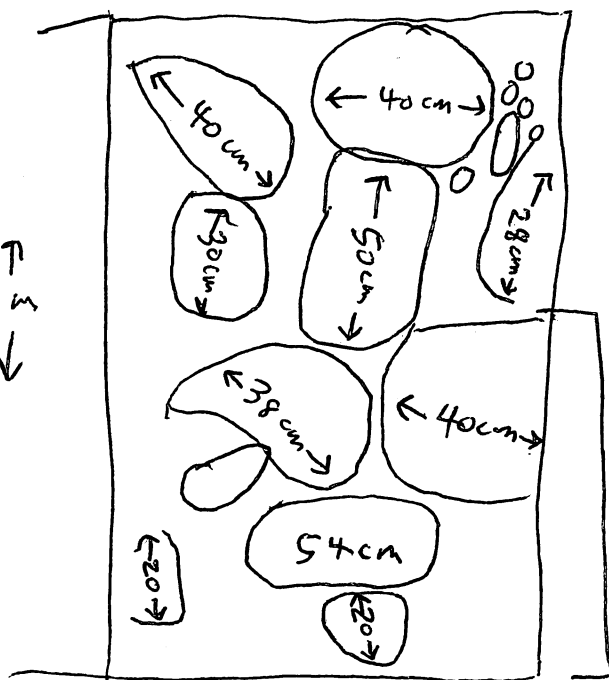 40 cm
40 cm
28 cm
30 cm
50 cm
m
38 cm
40 cm
54 cm
20
20